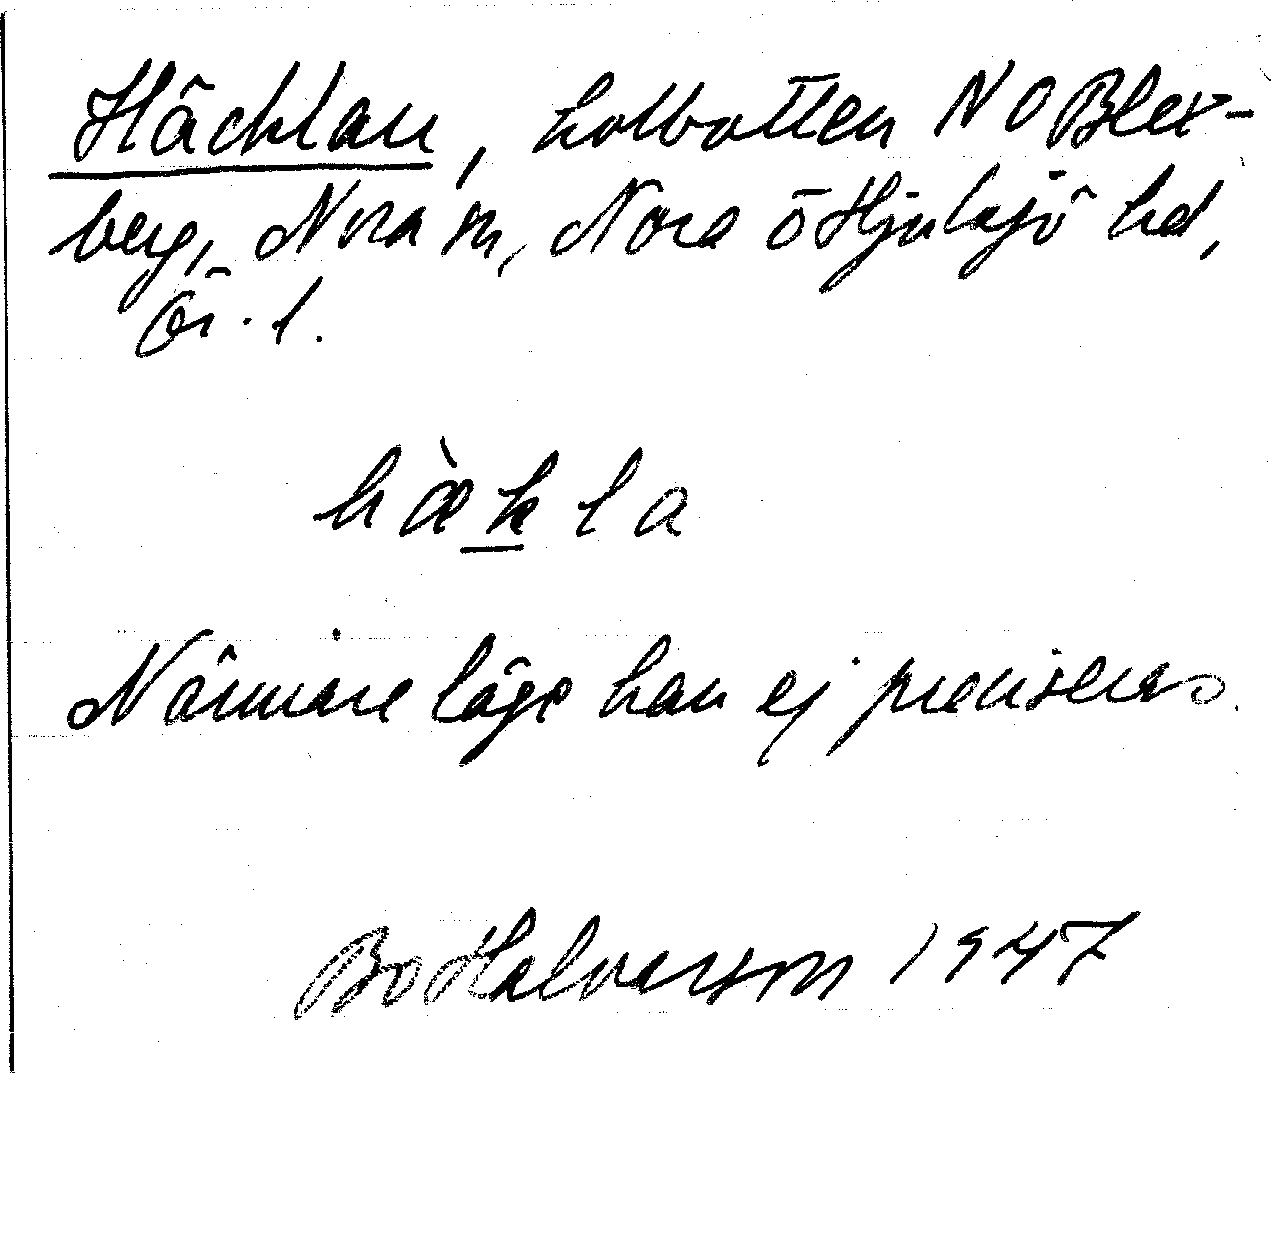 Häcklan, kolbotten NO Blex-
berg, Nora sn, Nora o Hjulsjö hd,
Ör. l.
hæ̀kla
Närmare läge kan ej preciseras.
Bo Halvarson 1947